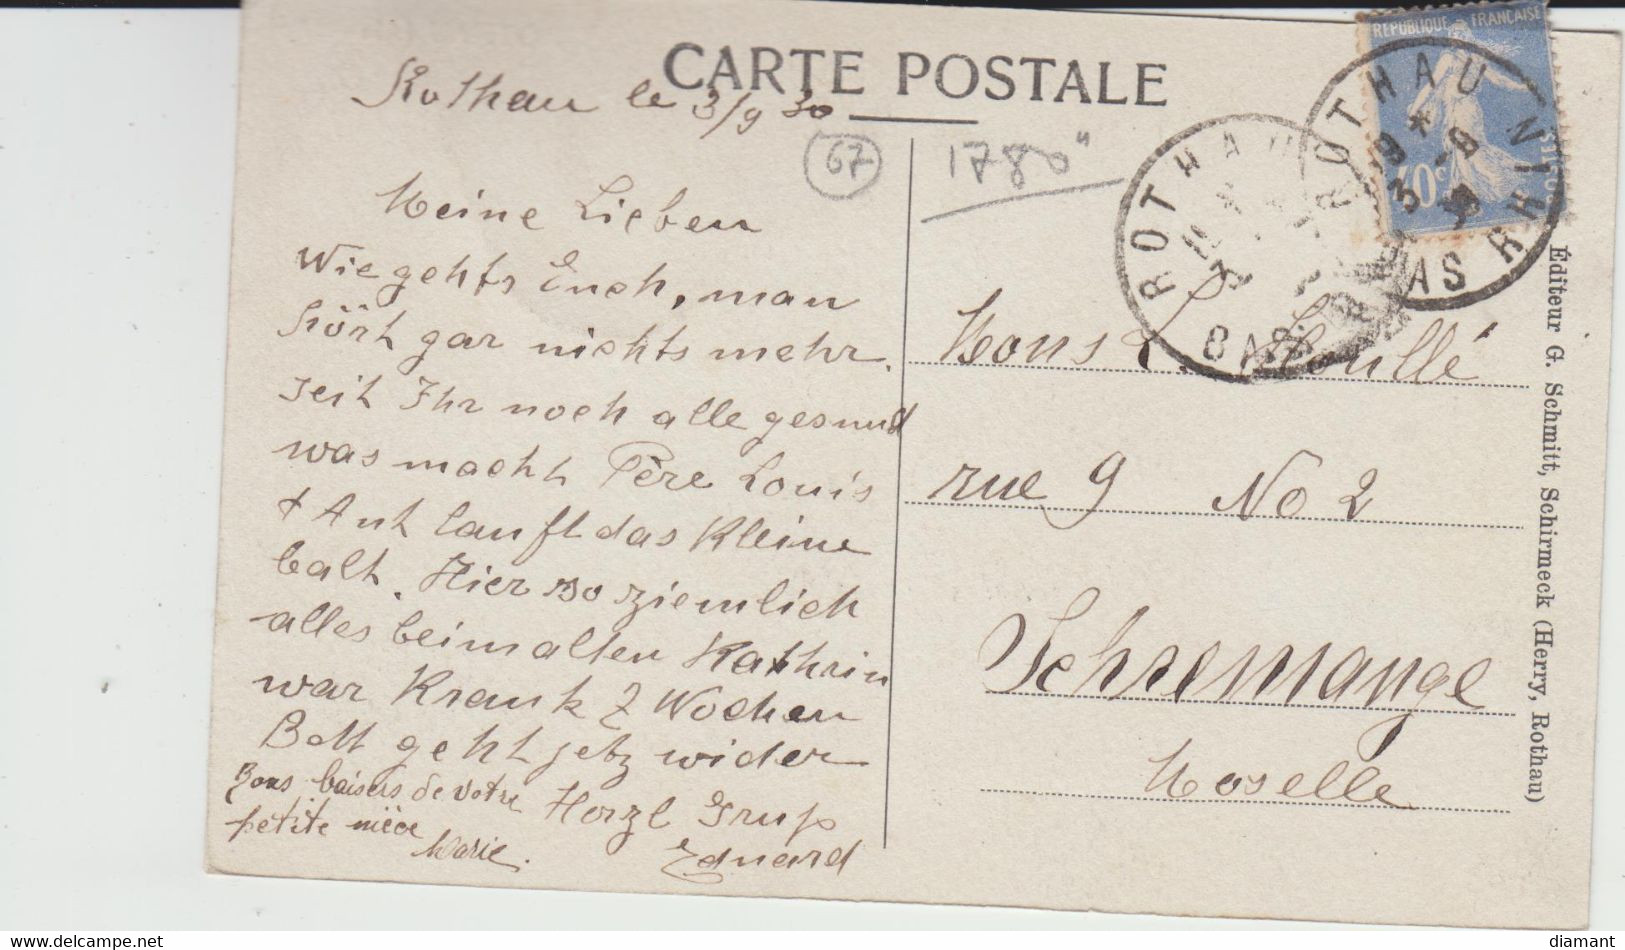 CARTE POSTALE
RÉPUBLIQUE FRANÇAISE
40c
ROTHAU
BAS RHIN
ROTHAU
BAS
Rothau le 3/9 30
67
1780"
Meine Lieben
Wie gehts Euch, man
hört gar nichts mehr.
seit Ihr noch alle gesund
was macht Père Louis
+ Ant lauft das Kleine
balt. Hier so ziemlich
alles beim alten Kathrin
war Krank 2 Wochen
Bett geht jetz wider
Herzl Grus
Eduard
Bons baisers de votre
petite nièce
Marie.
Mons L.
rue 9 No 2
Schremange
Moselle
Éditeur G. Schmitt, Schirmeck (Herry, Rothau)
diamant